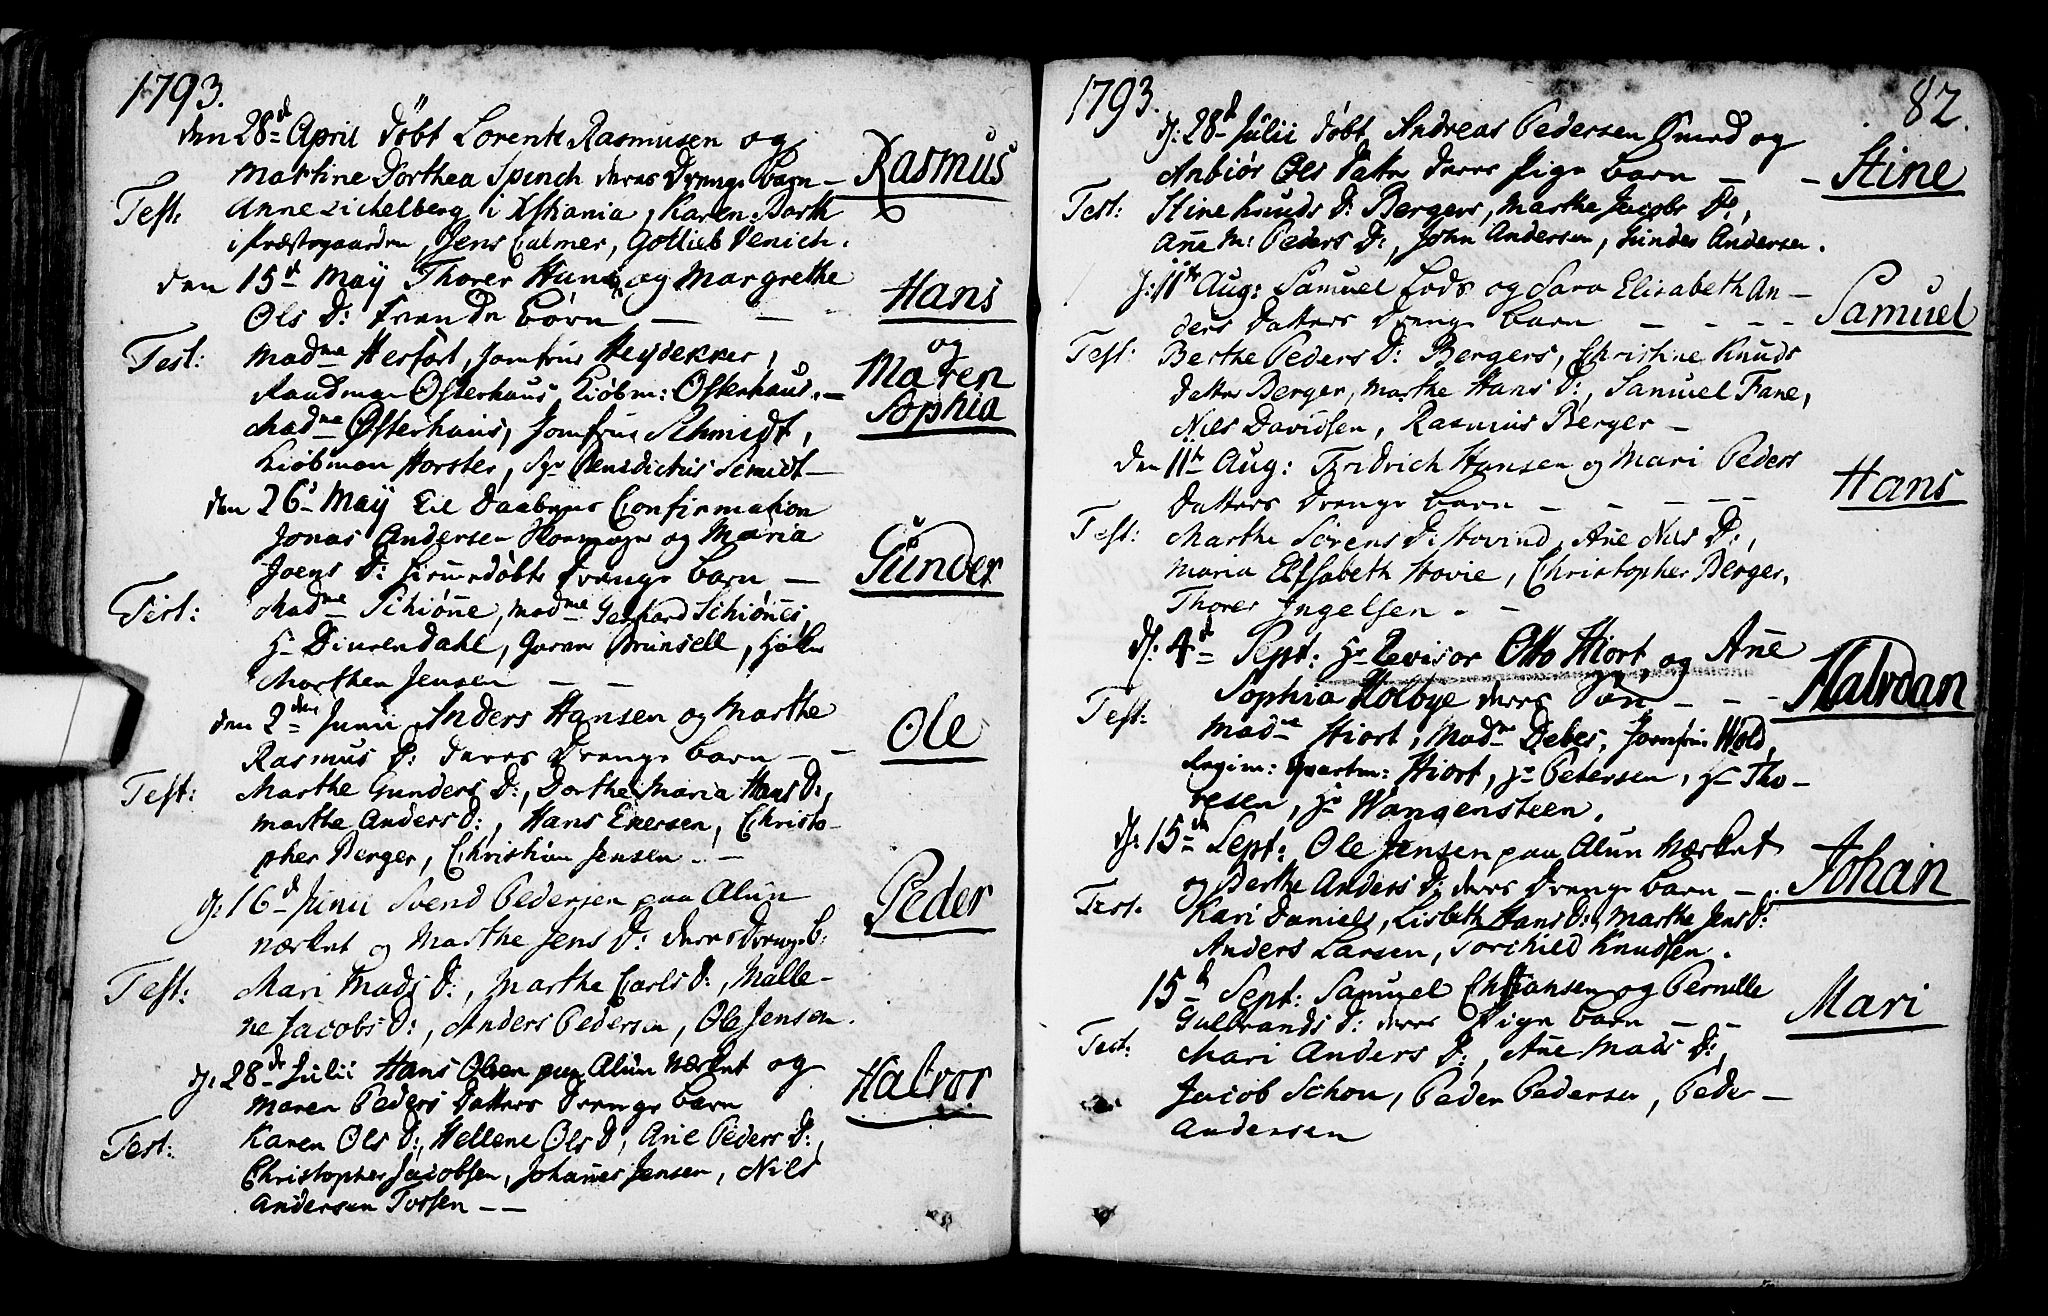 1793.
den 28d April döbt Lorents Rasmusen og
Martine Dorthea Spench deres Drenge barn — Rasmus
Test: Anne Eichelberg i Xstiania, Karen Barth
i Præstegaarden, Jens Calmer, Gotlieb Venich.
den 15d May Thorer Hund og Margrethe
Ols D: Børn — — Hans
og
Maren
Sophia
Test: Madme Herfort, Jomfrue Heydekker,
Raadman Østerhaus, Kiøbm: Østerhaus. —
Madme Østerhaus, Jomfrue Schmidt,
Kiøbman Horster, Sr Benedictus Semidt —
den 26d May til Daabens Confirmation
Jonas Andersen og Maria
Joens D: hiemedøbte Drenge barn — Gunder
Test: Madme Schiønne, Madme Gerhard Schiønnes,
Hr Diurendahl, Goran Brunsell,
Morthen Jensen — —
den 2den Junii Anders Hansen og Marthe
Rasmus D: deres Drenge barn — — Ole
Test: Marthe Gunders D:, Dorthe Maria Hans D:,
Marthe Anders D:, Hans Eversen, Christo-
pher Berger, Christian Jensen. —
d: 16d Junii Svend Pedersen paa Alun
værket og Marthe Jens D: deres Drenge b: Peder
Test: Mari Mads D:, Marthe Carls D:, Malle-
ne Jacobs D:, Anders Pedersen, Ole Jensen.
d: 28de Julii Hans Olsen paa Alun værket og
Maren Peders Datters Drenge barn Halvor
Test: Karen Ols D:, Hellene Ols D, Ane Peders D:,
Christopher Jacobsen, Johannes Jensen, Nils
Andersen Torsen — —
1793. 82.
d: 28d Julii döbt Andreas Pedersen Smed og
Anbiør Ols Datter deres Pige barn — — Stine
Test: Stine Knuds D: Bergers, Marthe Jacobs D:,
Ane M: Peders D:, John Andersen, Gunder Andersen.
d: 11te Aug: Samuel Lods og Sara Elisabeth An-
ders Datters Drenge barn — — — — Samuel
Test: Berthe Peders D: Bergers, Christine Knuds
datter Berger, Marthe Hans D:, Samuel Fane,
Niels Davidsen, Rasmus Berger —
den 11te Aug: Fridrich Hansen og Mari Peders
Datters Drenge barn — — — — Hans
Test: Marthe Sörens D: Hovind, Ane Niels D:,
Maria Elisabeth Hovie, Christopher Berger,
Thorer Ingelsen. —
d: 4d Sept: Hr Revisor Otto Hiort og Ane
Sophia Holbye deres Søn — — — Halvdan
Test: Madme Hiort, Madme Debes, Jomfrue Wold,
Regim: Qvartm: Hiort, Hr Petersen, Hr Tho-
resen, Hr Wangensteen.
d: 15de Sept: Ole Jensen paa Alun Værket
og Berthe Anders D: deres Drenge barn — Johan
Test. Kari Daniels, Lisbeth Hans D:, Marthe Jens D:
Anders Larsen, Torchild Knudsen.
15d Sept: Samuel Christiansen og Pernille
Gulbrands D: deres Pige barn — — Mari
Test: Mari Anders D:, Ane Mads D:,
Jacob Schou, Peder Pedersen, Peder —
Andersen